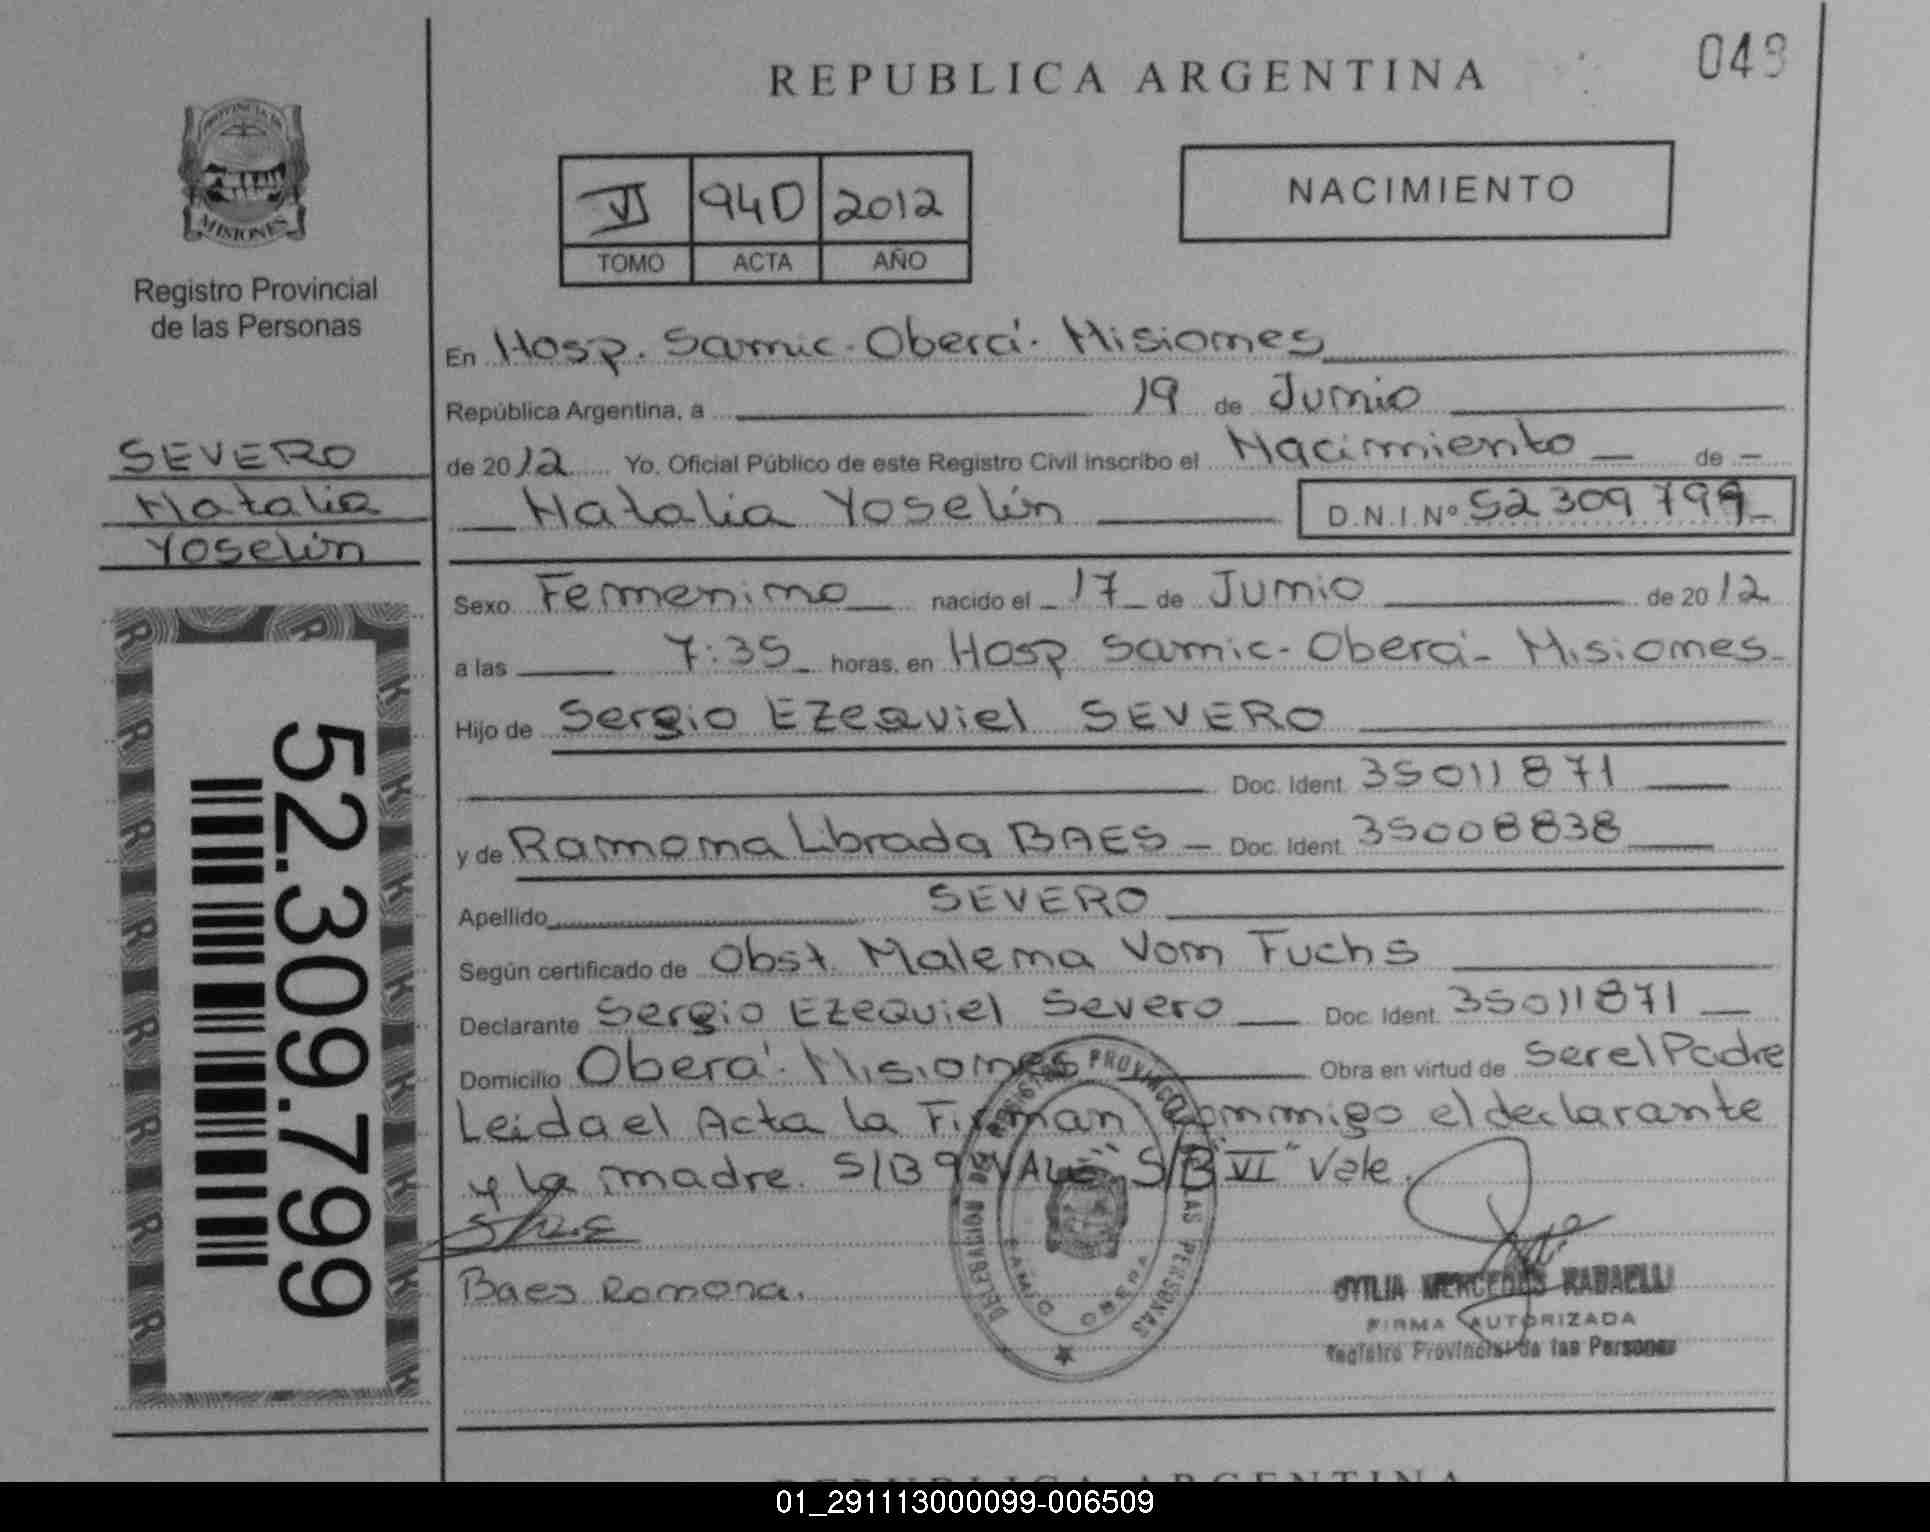 049
REPUBLICA ARGENTINA
PROVINCIA DE
MISIONES
Registro Provincial
de las Personas
VI 940 2012
TOMO ACTA AÑO
NACIMIENTO
SEVERO
Natalia
Yoselín
52.309.799
En Hosp. Samic - Oberá - Misiones
República Argentina, a 19 de Junio
de 2012 Yo, Oficial Público de este Registro Civil inscribo el Nacimiento de
Natalia Yoselín D.N.I.Nº 52 309 799
Sexo Femenino nacido el 17 de Junio de 2012
a las 7:35 horas, en Hosp. Samic - Oberá - Misiones
Hijo de Sergio Ezequiel SEVERO
Doc. Ident. 35011871
y de Ramona Librada BAES Doc. Ident. 35008838
Apellido SEVERO
Según certificado de Obst. Malena Von Fuchs
Declarante Sergio Ezequiel Severo Doc. Ident. 35011871
Domicilio Oberá - Misiones Obra en virtud de Ser el Padre
Leida el Acta la Firman conmigo el declarante
y la madre. S/B 9 VALE S/B "VI" Vale.
Baes Ramona.
DELEGACION DEL REGISTRO PROVINCIAL DE LAS PERSONAS
OBERA
MERCEDES RADAELLI
FIRMA AUTORIZADA
Registro Provincial de las Personas
REPUBLICA ARGENTINA
01_291113000099-006509